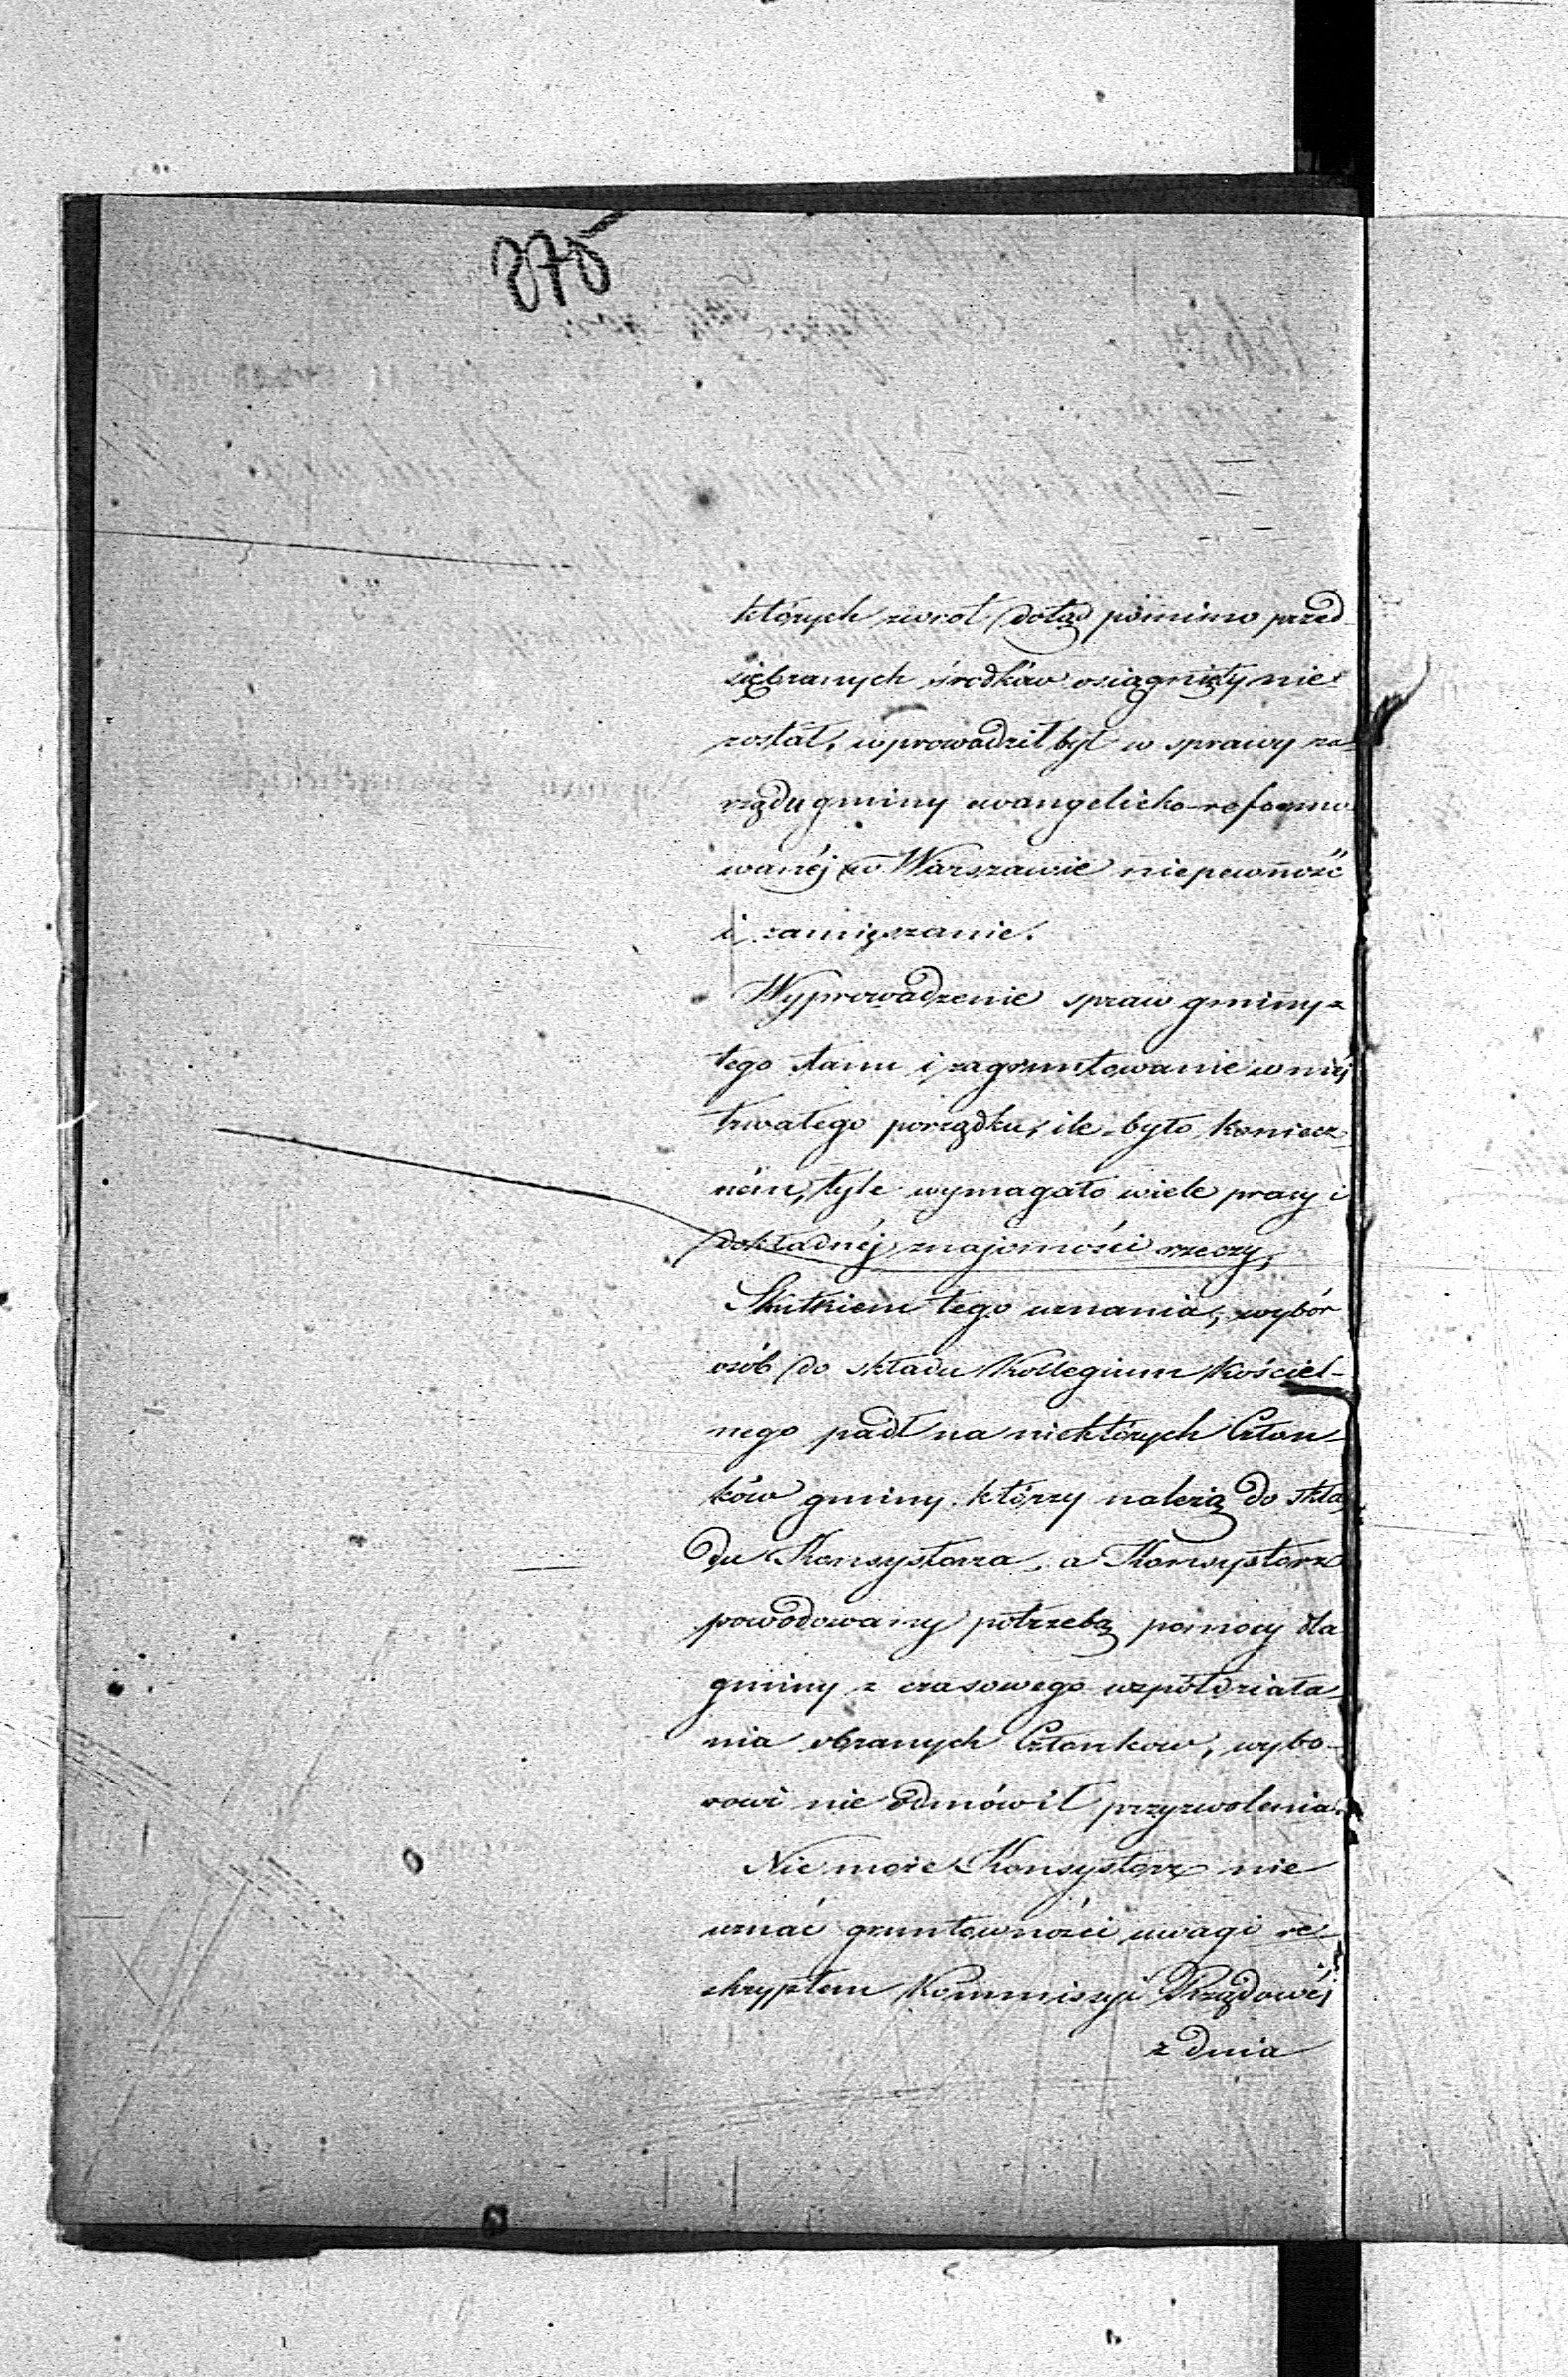 375
których zwrot dotąd pomimo przed
sięhranych środków osiągnięty nie
został, wprowadził był w sprawy za-
rządu gminy ewangelicko-reformo-
wanéj w Warszawie niepewność
i zamięszanie.
Wyprowadzenie spraw gminy z
tego stanu i zagruntowanie w niéj
trwałego porządku, ile było koniecz-
ném, tyle wymagało wiele pracy i
dokładnéj znajomości rzeczy,
Skutkiem tego uznania, wybór
osób do składu Kollegium Kościel-
nego padł na niektórych Człon-
ków gminy którzy należą do skła-
du Konsystorza, a Konsystorz
powodowany potrzebą pomocy dla
gminy z czasowego współdziała-
nia obranych Członkow, wybo-
rowi nie odmówił przyzwolenia.
Nie może Konsystorz nie
uznać gruntowności uwagi re-
skryptem Kommissyi Rządowéj
z dnia